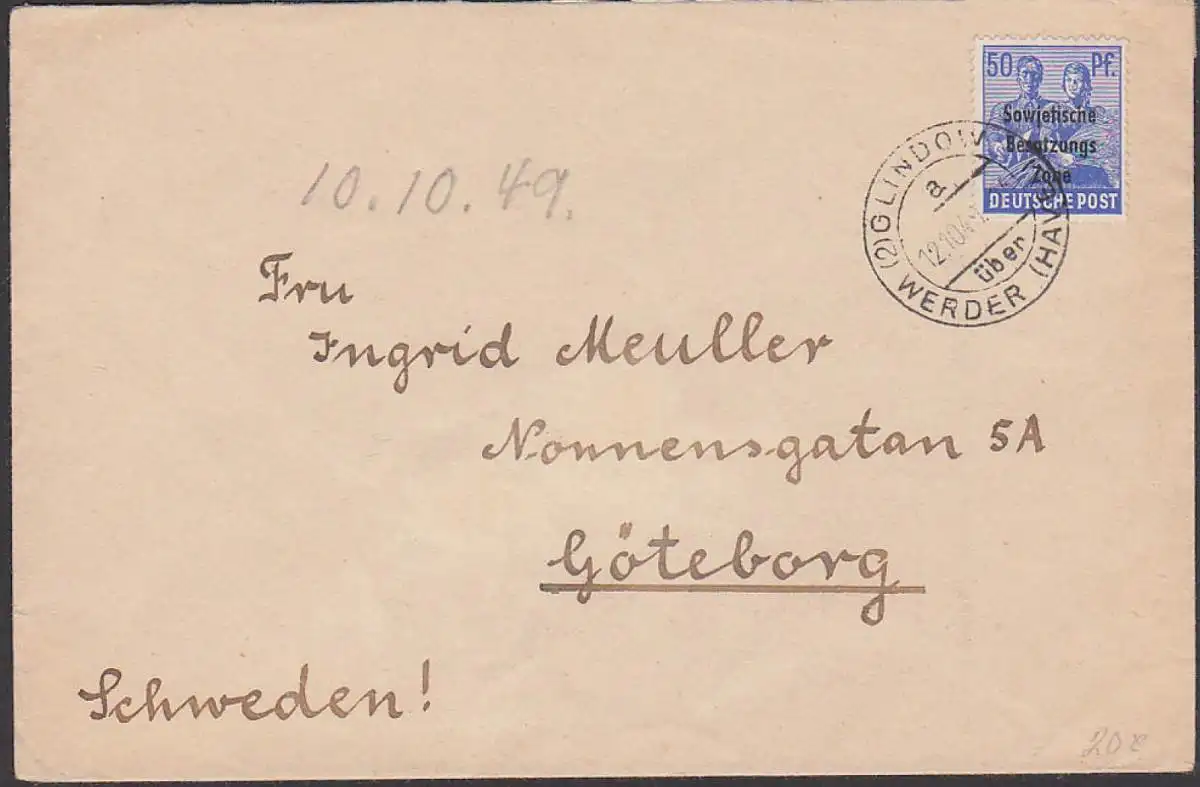 50 Pf.
Sowjetische
Besatzungs
Zone
DEUTSCHE POST
(2) GLINDOW
a
12.10.4
über
WERDER (HAV
10.10.49.
Fru
Ingrid Meuller
Nonnensgatan 5A
Göteborg
Schweden!
20€